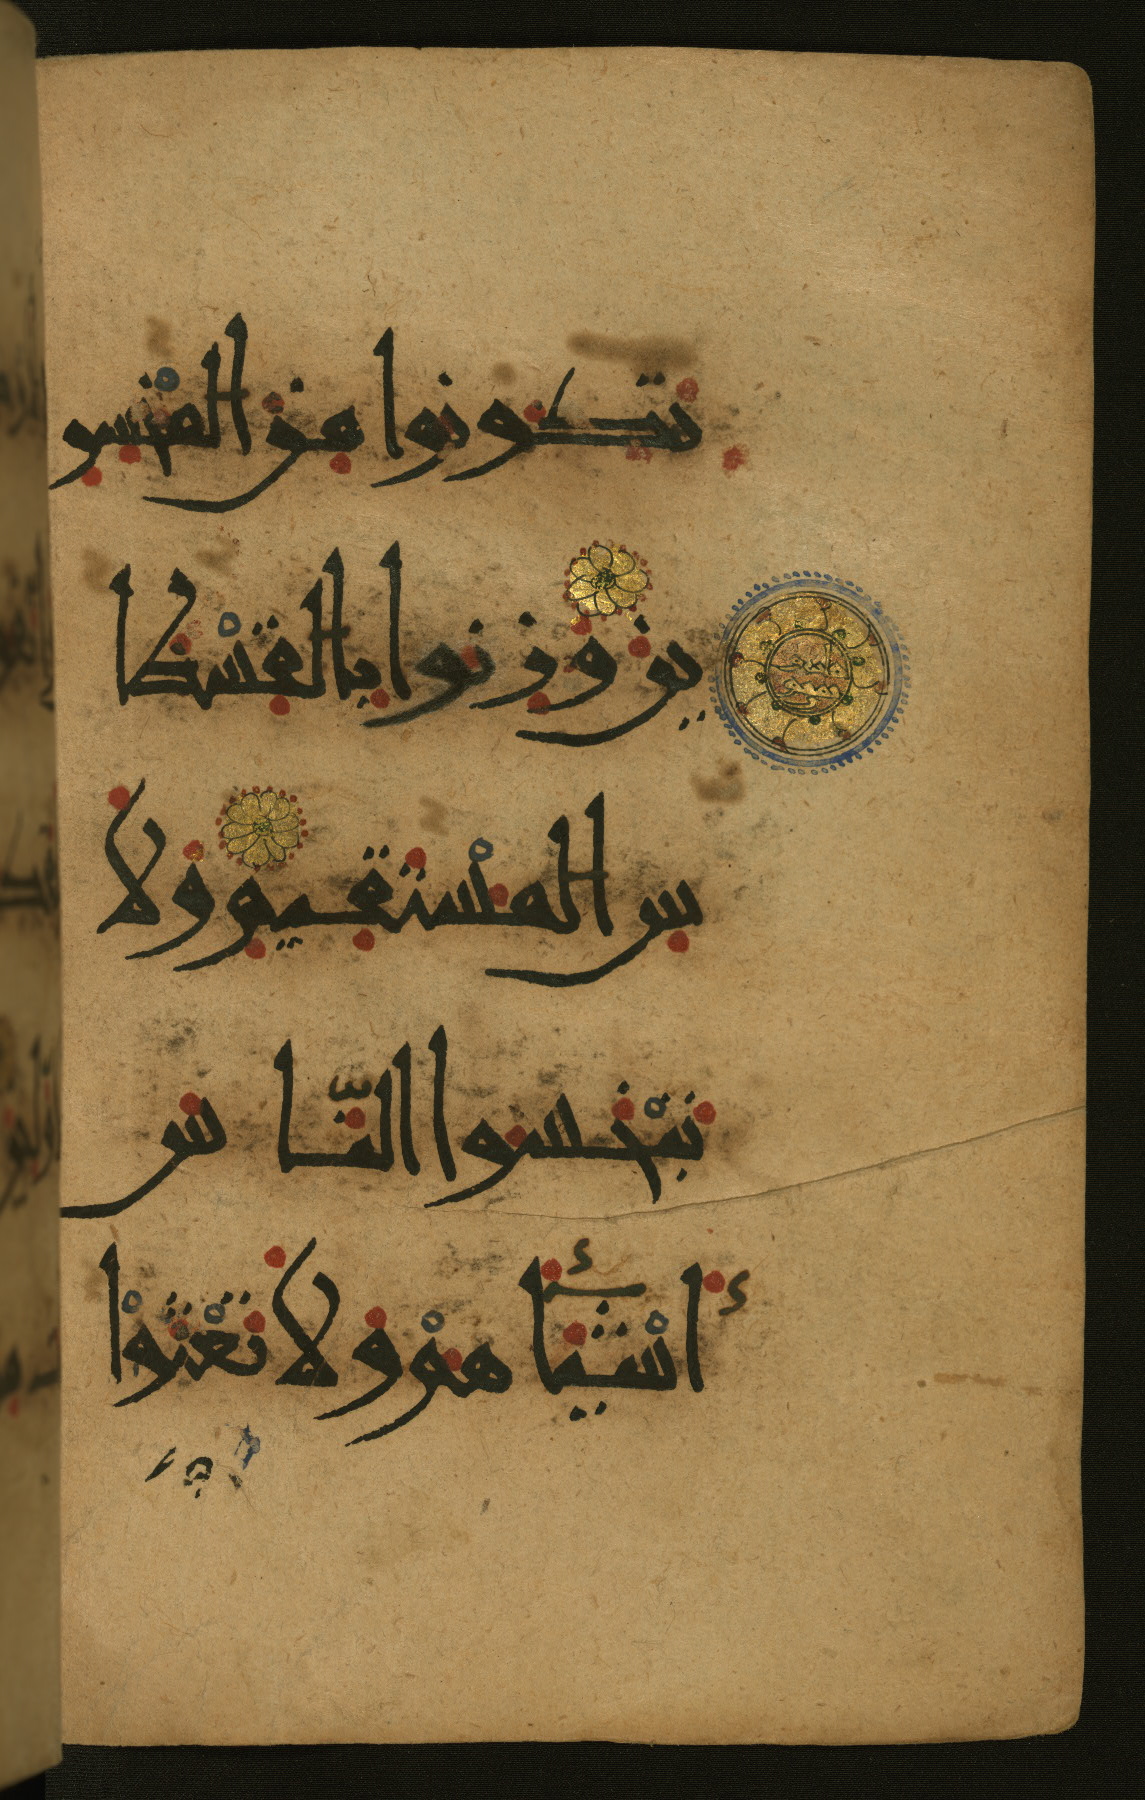 تكونوا من المخسر
ين وزنوا بالقسطا
س المستقيم ولا
تبخسوا النّاس
أشياءهم ولا تعثوا